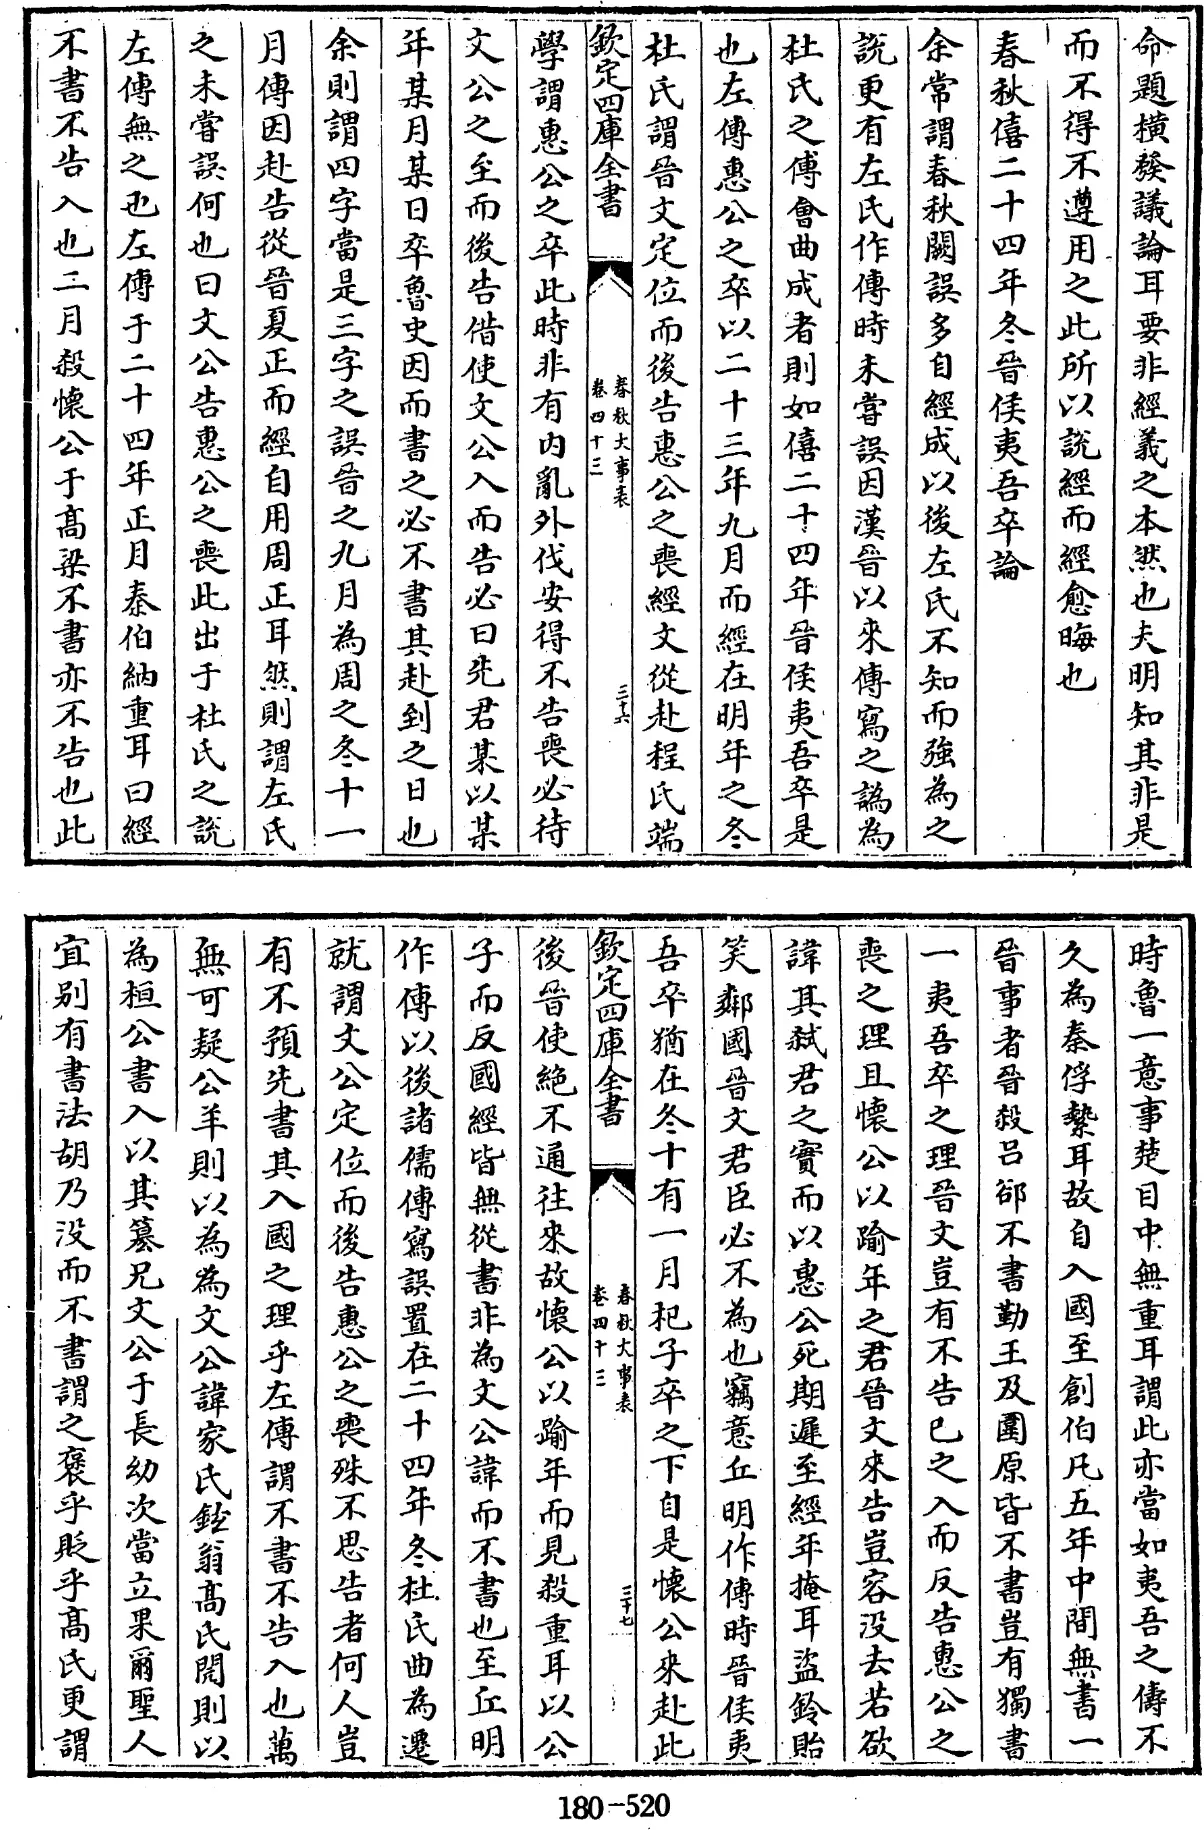 命題横發議論耳要非經義之本然也夫明知其非是
而不得不遵用之此所以説經而經愈晦也
春秋僖二十四年冬晉侯夷吾卒論
余常謂春秋闕誤多自經成以後左氏不知而強為之
説更有左氏作傳時未嘗誤因漢晉以來傳寫之譌為
杜氏之傅會曲成者則如僖二十四年晉侯夷吾卒是
也左傳惠公之卒以二十三年九月而經在明年之冬
杜氏謂晉文定位而後告惠公之喪經文從赴程氏端
欽定四庫全書
春秋大事表
卷四十三
三十六
學謂惠公之卒此時非有内亂外伐安得不告喪必待
文公之至而後告借使文公入而告必曰先君某以某
年某月某日卒魯史因而書之必不書其赴到之日也
余則謂四字當是三字之誤晉之九月為周之冬十一
月傳因赴告從晉夏正而經自用周正耳然則謂左氏
之未嘗誤何也曰文公告惠公之喪此出于杜氏之説
左傳無之也左傳于二十四年正月秦伯納重耳曰經
不書不告入也二月殺懷公于高梁不書亦不告也此
時魯一意事楚目中無重耳謂此亦當如夷吾之儔不
久為秦俘縶耳故自入國至創伯凡五年中間無書一
晉事者晉殺呂郤不書勤王及圍原皆不書豈有獨書
一夷吾卒之理晉文豈有不告己之入而反告惠公之
喪之理且懷公以踰年之君晉文來告豈容没去若欲
諱其弑君之實而以惠公死期遲至經年掩耳盜鈴貽
笑鄰國晉文君臣必不為也竊意丘明作傳時晉侯夷
吾卒猶在冬十有一月杞子卒之下自是懷公來赴此
欽定四庫全書
春秋大事表
卷四十三
三十七
後晉使絶不通往來故懷公以踰年而見殺重耳以公
子而反國經皆無從書非為文公諱而不書也至丘明
作傳以後諸儒傳寫誤置在二十四年冬杜氏曲為遷
就謂文公定位而後告惠公之喪殊不思告者何人豈
有不預先書其入國之理乎左傳謂不書不告入也萬
無可疑公羊則以為為文公諱家氏鉉翁高氏閌則以
為桓公書入以其簒兄文公于長幼次當立果爾聖人
宜别有書法胡乃没而不書謂之褒乎貶乎高氏更謂
180-520